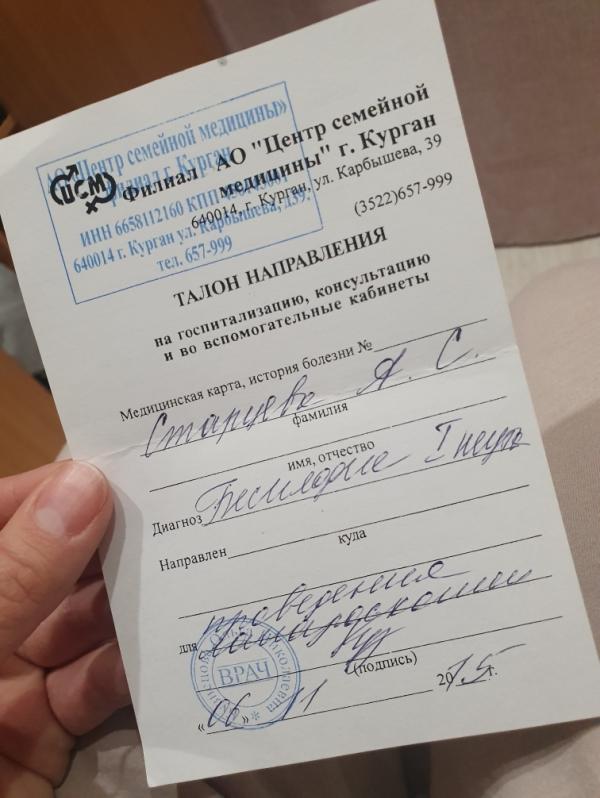 АО "Центр семейной медицины»
филиал г. Курган
ИНН 6658112160 КПП
640014 г. Курган ул. Карбышева, д39.
тел. 657-999
ЦСМ
Филиал АО "Центр семейной
медицины" г. Курган
640014, г. Курган, ул. Карбышева, 39
(3522)657-999
ТАЛОН НАПРАВЛЕНИЯ
на госпитализацию, консультацию
и во вспомогательные кабинеты
Медицинская карта, история болезни №
Старцева А. С.
фамилия
имя, отчество
Диагноз Бесплодие I
Направлен
куда
проведения
для лапароскопии
(подпись)
ВРАЧ
«06» 11 2015 г.